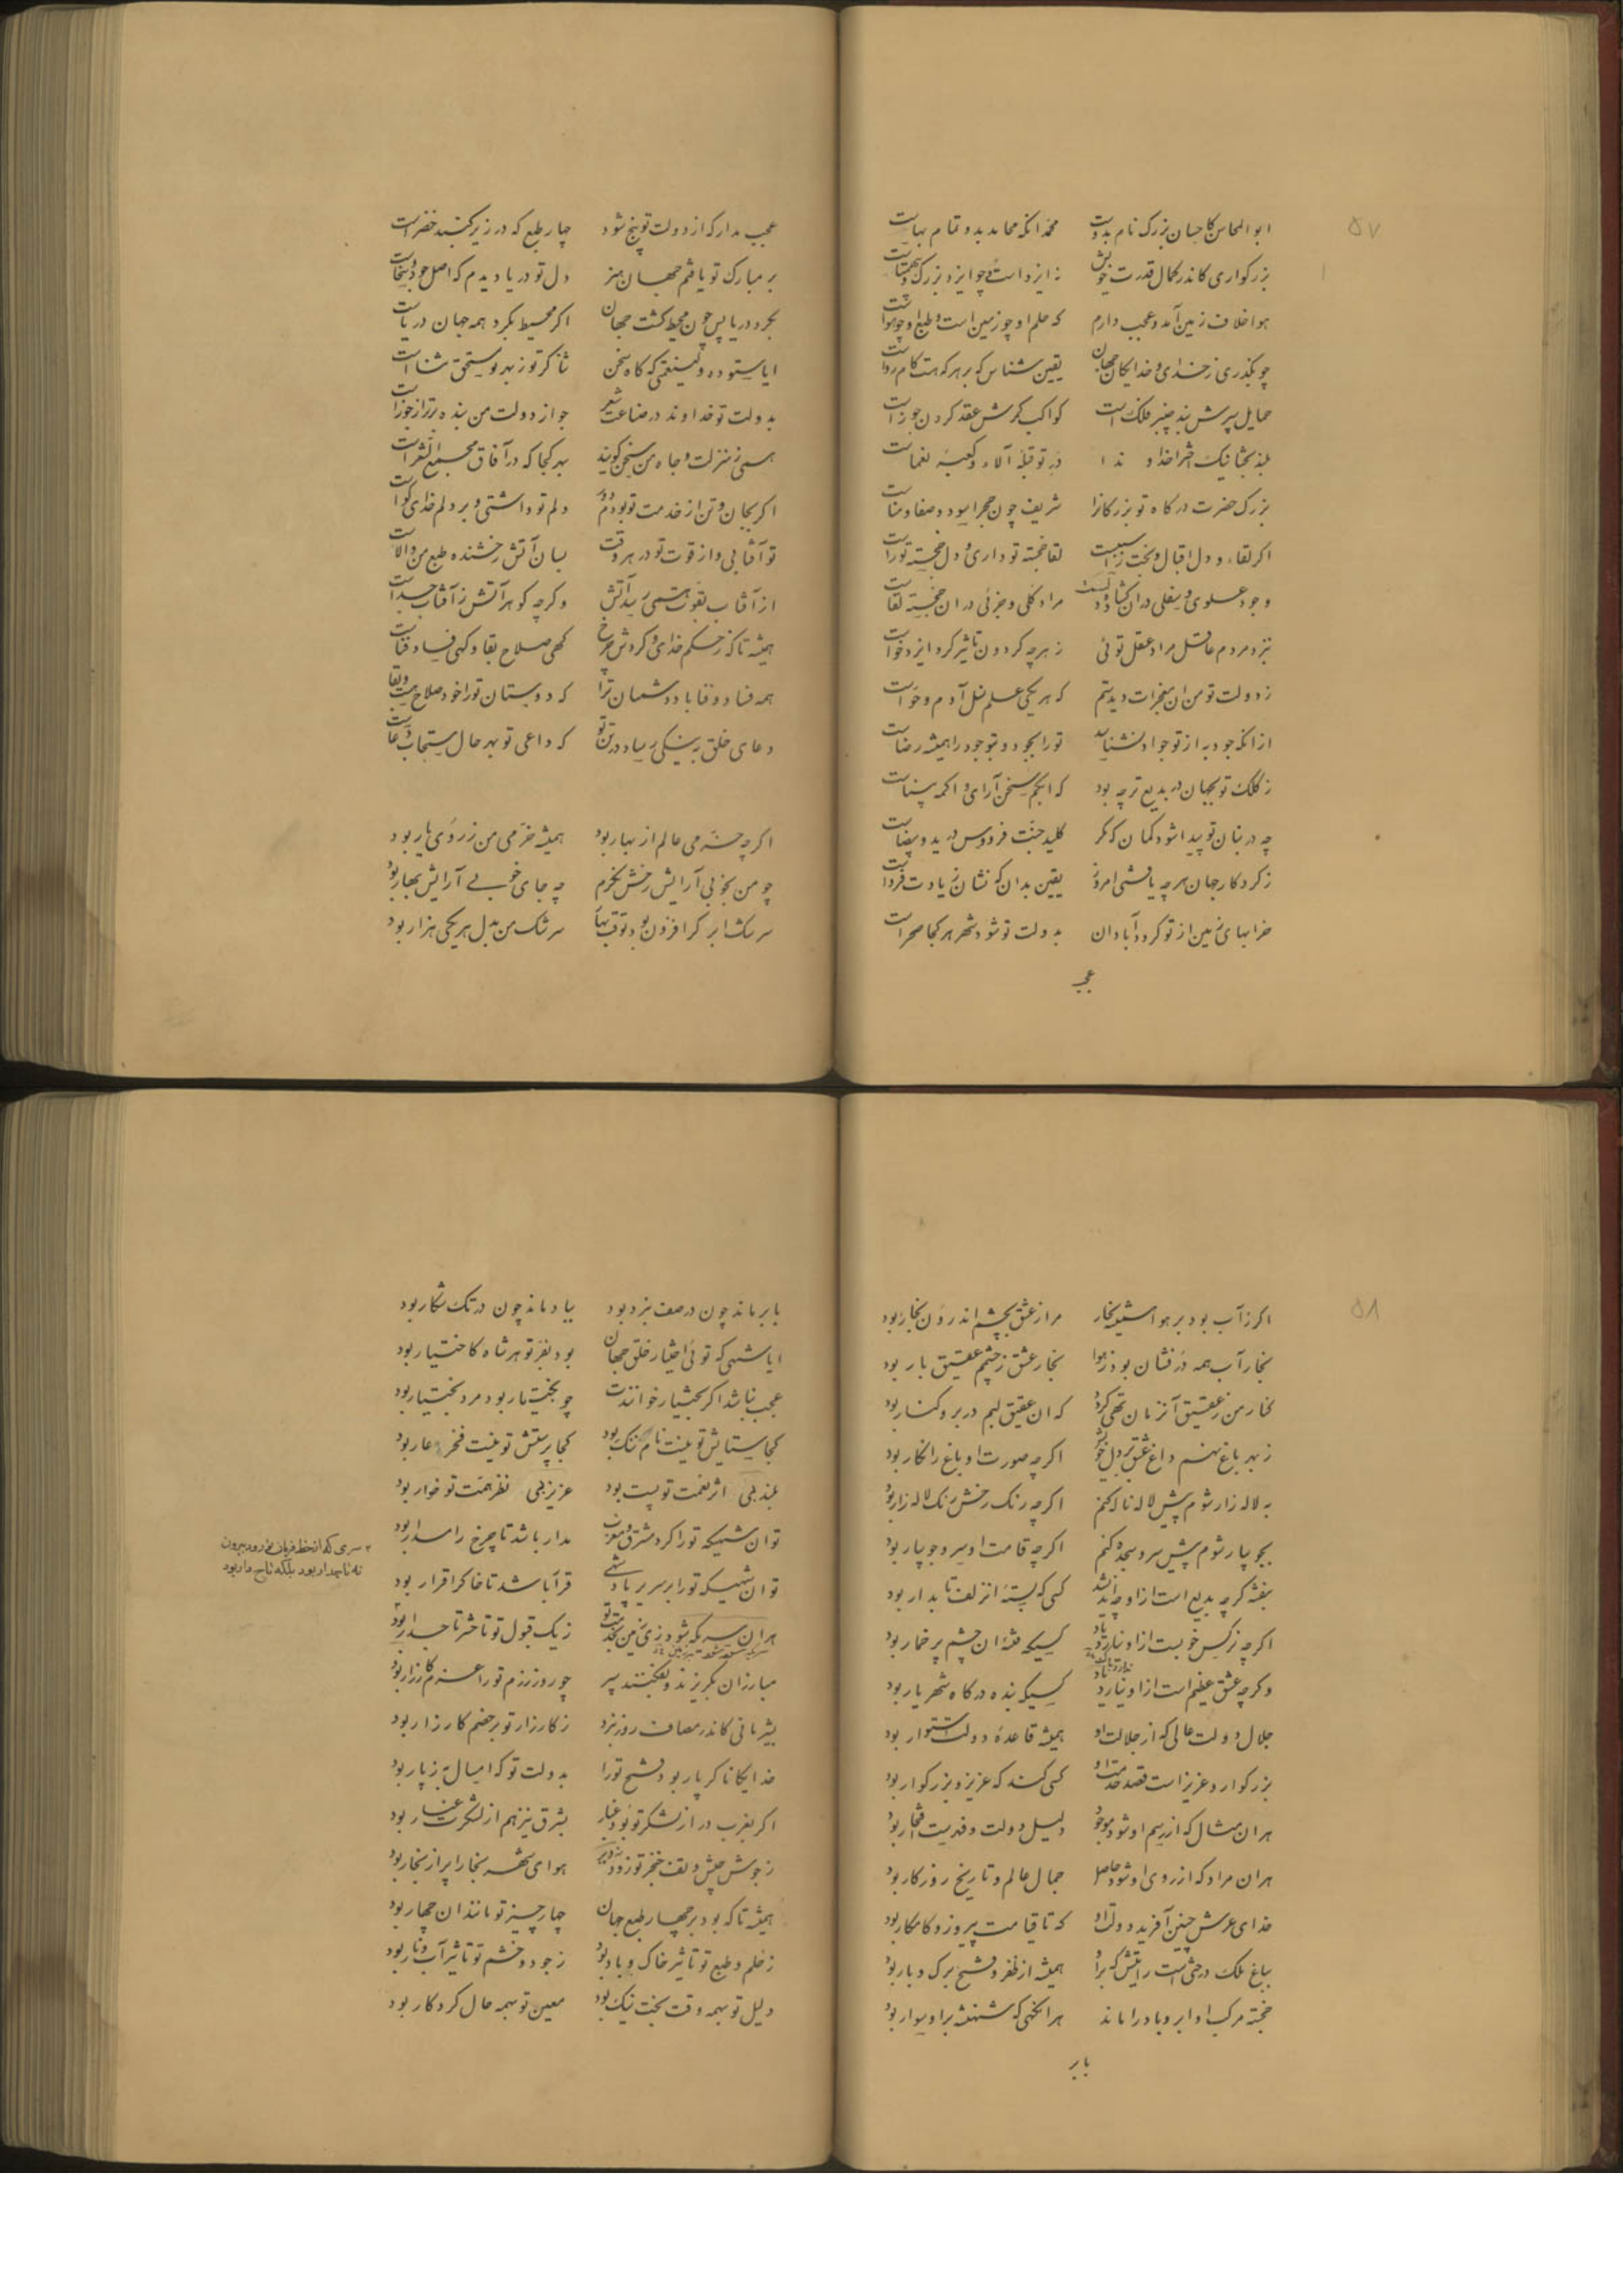 ۵۷
ابوالمحاسن کاحسان بزرگ نام بدوست محمد آنکه محامد بدو تمام بهاست
بزرگواری کاندر کمال قدرت خویش نه ایزد است و چو ایزد بزرگ و بی همتاست
هوا خلاف زمین آمد و عجب دارم که حلم او چو زمین است و طبع او چو هواست
چو بگذری ز خدای و خدایکان جهان یقین شناس که بر هر که هست کام رواست
حمایل سپرش بند چنبر فلک است کواکب کمرش عقد گردن جوزاست
بلند بختا نیک اخترا خداوندا در تو قبله آلاء و کعبه نعماست
بزرگ حضرت درکاه تو بزرکانرا شریف چون حجرالاسود و صفا و مناست
اکر لقاء و دل اقبال و بخت را سبب است لقا خجسته تو داری و دل خجسته تو راست
وجود علوی و سفلی در ان کشاده دلست مراد کلی و جزئی در ان خجسته لقاست
بنزد مردم عاقل مراد عقل توئی ز هر چه کردون تاثیر کرد و ایزد خواست
ز دولت تو من ان معجزات دیدستم که هر یکی علم نسل آدم و حواست
از انکه جود به از تو جواد نشناسد تو را بجود و بتو جود را همیشه رضاست
ز کلک تو بجهان در بدیع تر چه بود که ابکم سخن آرای و اکمه بیناست
چه در بنان تو پیدا شود کمان که مکر کلید جنت فردوس در ید بیضاست
ز کردکار جهان هر چه یافتی امروز یقین بدان که نشان زیادت فرداست
خرابهای زمین از تو کردد آبادان بدولت تو شود شهر هر کجا صحراست
عجب
عجب مدار که از دولت تو پنج شود چهار طبع که در زیر کنبد خضراست
بر مبارک تو یافتم جهان هنر دل تو دریا دیدم که اصل جود و سخاست
بکرد دریا پس چون محیط کشت جهان اکر محیط بکرد همه جهان دریاست
ایا ستوده ولینعمتی که کاه سخن ثناکر تو ز بهر تو مستحق ثناست
بدولت تو خداوند در صناعت شعر جواز دولت من بنده برتر از جوزاست
همی ز منزلت و جاه من سخن کویند بهر کجا که در آفاق مجمع الشعراست
اکر بجان و تن از خدمت تو بودم دور دلم تو داشتی و بر دلم خدای کواست
تو آفتابی و از قوت تو در هر وقت بسان آتش رخشنده طبع من والاست
از آفتاب بقوت همی رسد آتش وکرچه کوهر آتش ز آفتاب جداست
همیشه تا که ز حکم خدای و کردش چرخ کهی صلاح بقا و کهی فساد و فناست
همه فنا و فنا باد دشمنان ترا که دوستان تو را خود صلاح هست و بقاست
دعای خلق به نیکی رساد در تن تو که داعی تو بهر حال مستجاب دعاست
اکرچه خرمی عالم از بهار بود همیشه خرمی من ز روی یار بود
چو من بخوبی آرایش رخش نکرم چه جای خوبی آرایش بهار بود
سرشک ابر کر افزون بود بوقت بهار سرشک من بدل هر یکی هزار بود
۵۸
اکر ز آب بود بر هوا همیشه بخار مرا ز عشق بچشم اندرون بخار بود
بخار آب همه در فشان بود ز هوا بخار عشق ز چشمم عقیق بار بود
کنار من ز عقیق آنزمان تهی کردد که ان عقیق لبم در بر و کنار بود
ز بهر باغ نهم داغ عشق بر دل خویش اکرچه صورت او باغ را نکار بود
به لاله زار شوم پیش لاله ناله کنم اکرچه رنک رخش رنک لاله زار بود
بجویبار شوم پیش سرو سجده کنم اکرچه قامت او سرو جویبار بود
بنفشه کرچه بدیع است از او چه اندیشد کسی که بسته ان زلف تابدار بود
اکرچه نرکس خوبست از او نیارد یاد کسیکه فتنه ان چشم پر خمار بود
وکرچه عشق عظیم است از او نیارد یاد کسیکه بنده درکاه شهریار بود
جلال دولت عالی که از جلالت او همیشه قاعده دولت استوار بود
بزرکوار و عزیز است قصد خدمت او کسی کند که عزیز و بزرکوار بود
هر ان مثال که از رسم او شود موجود دلیل دولت و فهرست افتخار بود
هر ان مراد که از روی او شود حاصل جمال عالم و تاریخ روزکار بود
خدای عرش چنین آفرید دولت او که تا قیامت پیروز و کامکار بود
بباغ ملک درختی است رایتش که بر او همیشه از ظفر و فتح برک و بار بود
خجسته مرکب او ابر و باد را ماند هر انکهی که شهنشه بر او سوار بود
بابر
بابر ماند چون در صف نبرد بود بباد ماند چون در تک شکار بود
ایا شهی که توئی اختیار خلق جهان بود بفر تو هر شاه کاختیار بود
عجب نباشد اکر بختیار خوانندت چو بخت یار بود مرد بختیار بود
کجا ستایش تو نیست نام ننک بود کجا پرستش تو نیست فخر عار بود
بلند بی اثر نعمت تو پست بود عزیز بی نظر همت تو خوار بود
توان شهیکه تو را کرد مشرق و مغرب مدار باشد تا چرخ را مدار بود
توان شهیکه تو را بر سریر پادشهی قرار باشد تا خاک را قرار بود
هر ان سریکه شود بر زمین خدمت تو ز یک قبول تو تا حشر تاجدار بود
مبارزان بکریزند و بفکنند سپر چو روز رزم تو را عزم کارزار بود
بشیر مانی کاندر مصاف روز نبرد ز کارزار تو بر خصم کار زار بود
خدایکانا کر پار بود فتح تو را بدولت تو که امسال به ز پار بود
اکر بغرب در از لشکر تو بود غبار بشرق نیز هم از لشکرت غبار بود
ز جوش جیش و تف خنجر تو زود بود هوای شهر بخارا پر از بخار بود
همیشه تا که بود بر چهار طبع جهان چهار چیز تو مانند ان چهار بود
ز حلم و طبع تو تاثیر خاک و باد بود ز جود و خشم تو تاثیر آب و نار بود
دلیل تو بهمه وقت بخت نیک بود معین تو بهمه حال کردکار بود
۲ سری که از خط فرمان تو رود بیرون
نه تاجدار بود بلکه تاج دار بود